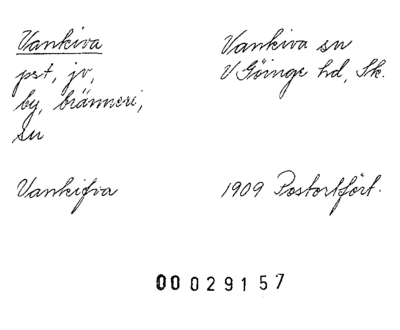 Vankiva
pst, jv,
by, bränneri,
sn
Vankiva sn
V Göinge hd, Sk.
Vankifva
1909 Postortfört.
00029157